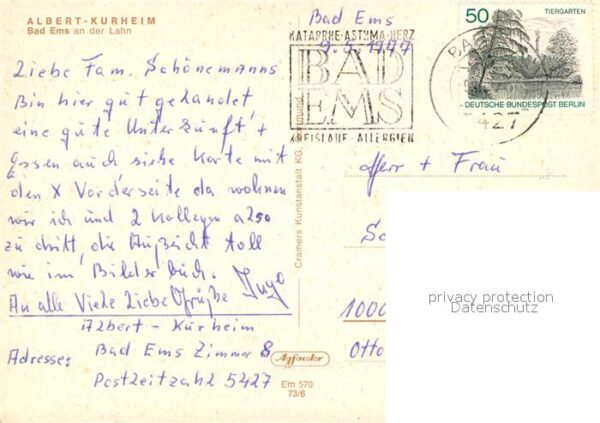 ALBERT-KURHEIM
Bad Ems an der Lahn
Liebe Fam. Schönemanns
Bin hier gut gelandet,
eine gute Unterkunft +
Essen auch siehe Karte mit
den X Vorderseite da wohnen
wir ich und 2 Kollegen also
zu dritt, die Aussicht toll
wie im Bilderbuch.
An alle Viele Liebe Grüße Ingo
Albert - Kurheim
Adresse: Bad Ems Zimmer 8
Postleitzahl 5427
Cramers Kunstanstalt KG,
Agfacolor
Em 570
73/6
Bad Ems
KATARRHE-ASTHMA-HERZ
BAD
EMS
KREISLAUF-ALLERGIEN
50
TIERGARTEN
DEUTSCHE BUNDESPOST BERLIN
Herr + Frau
Sc
1000
Otto
privacy protection
Datenschutz